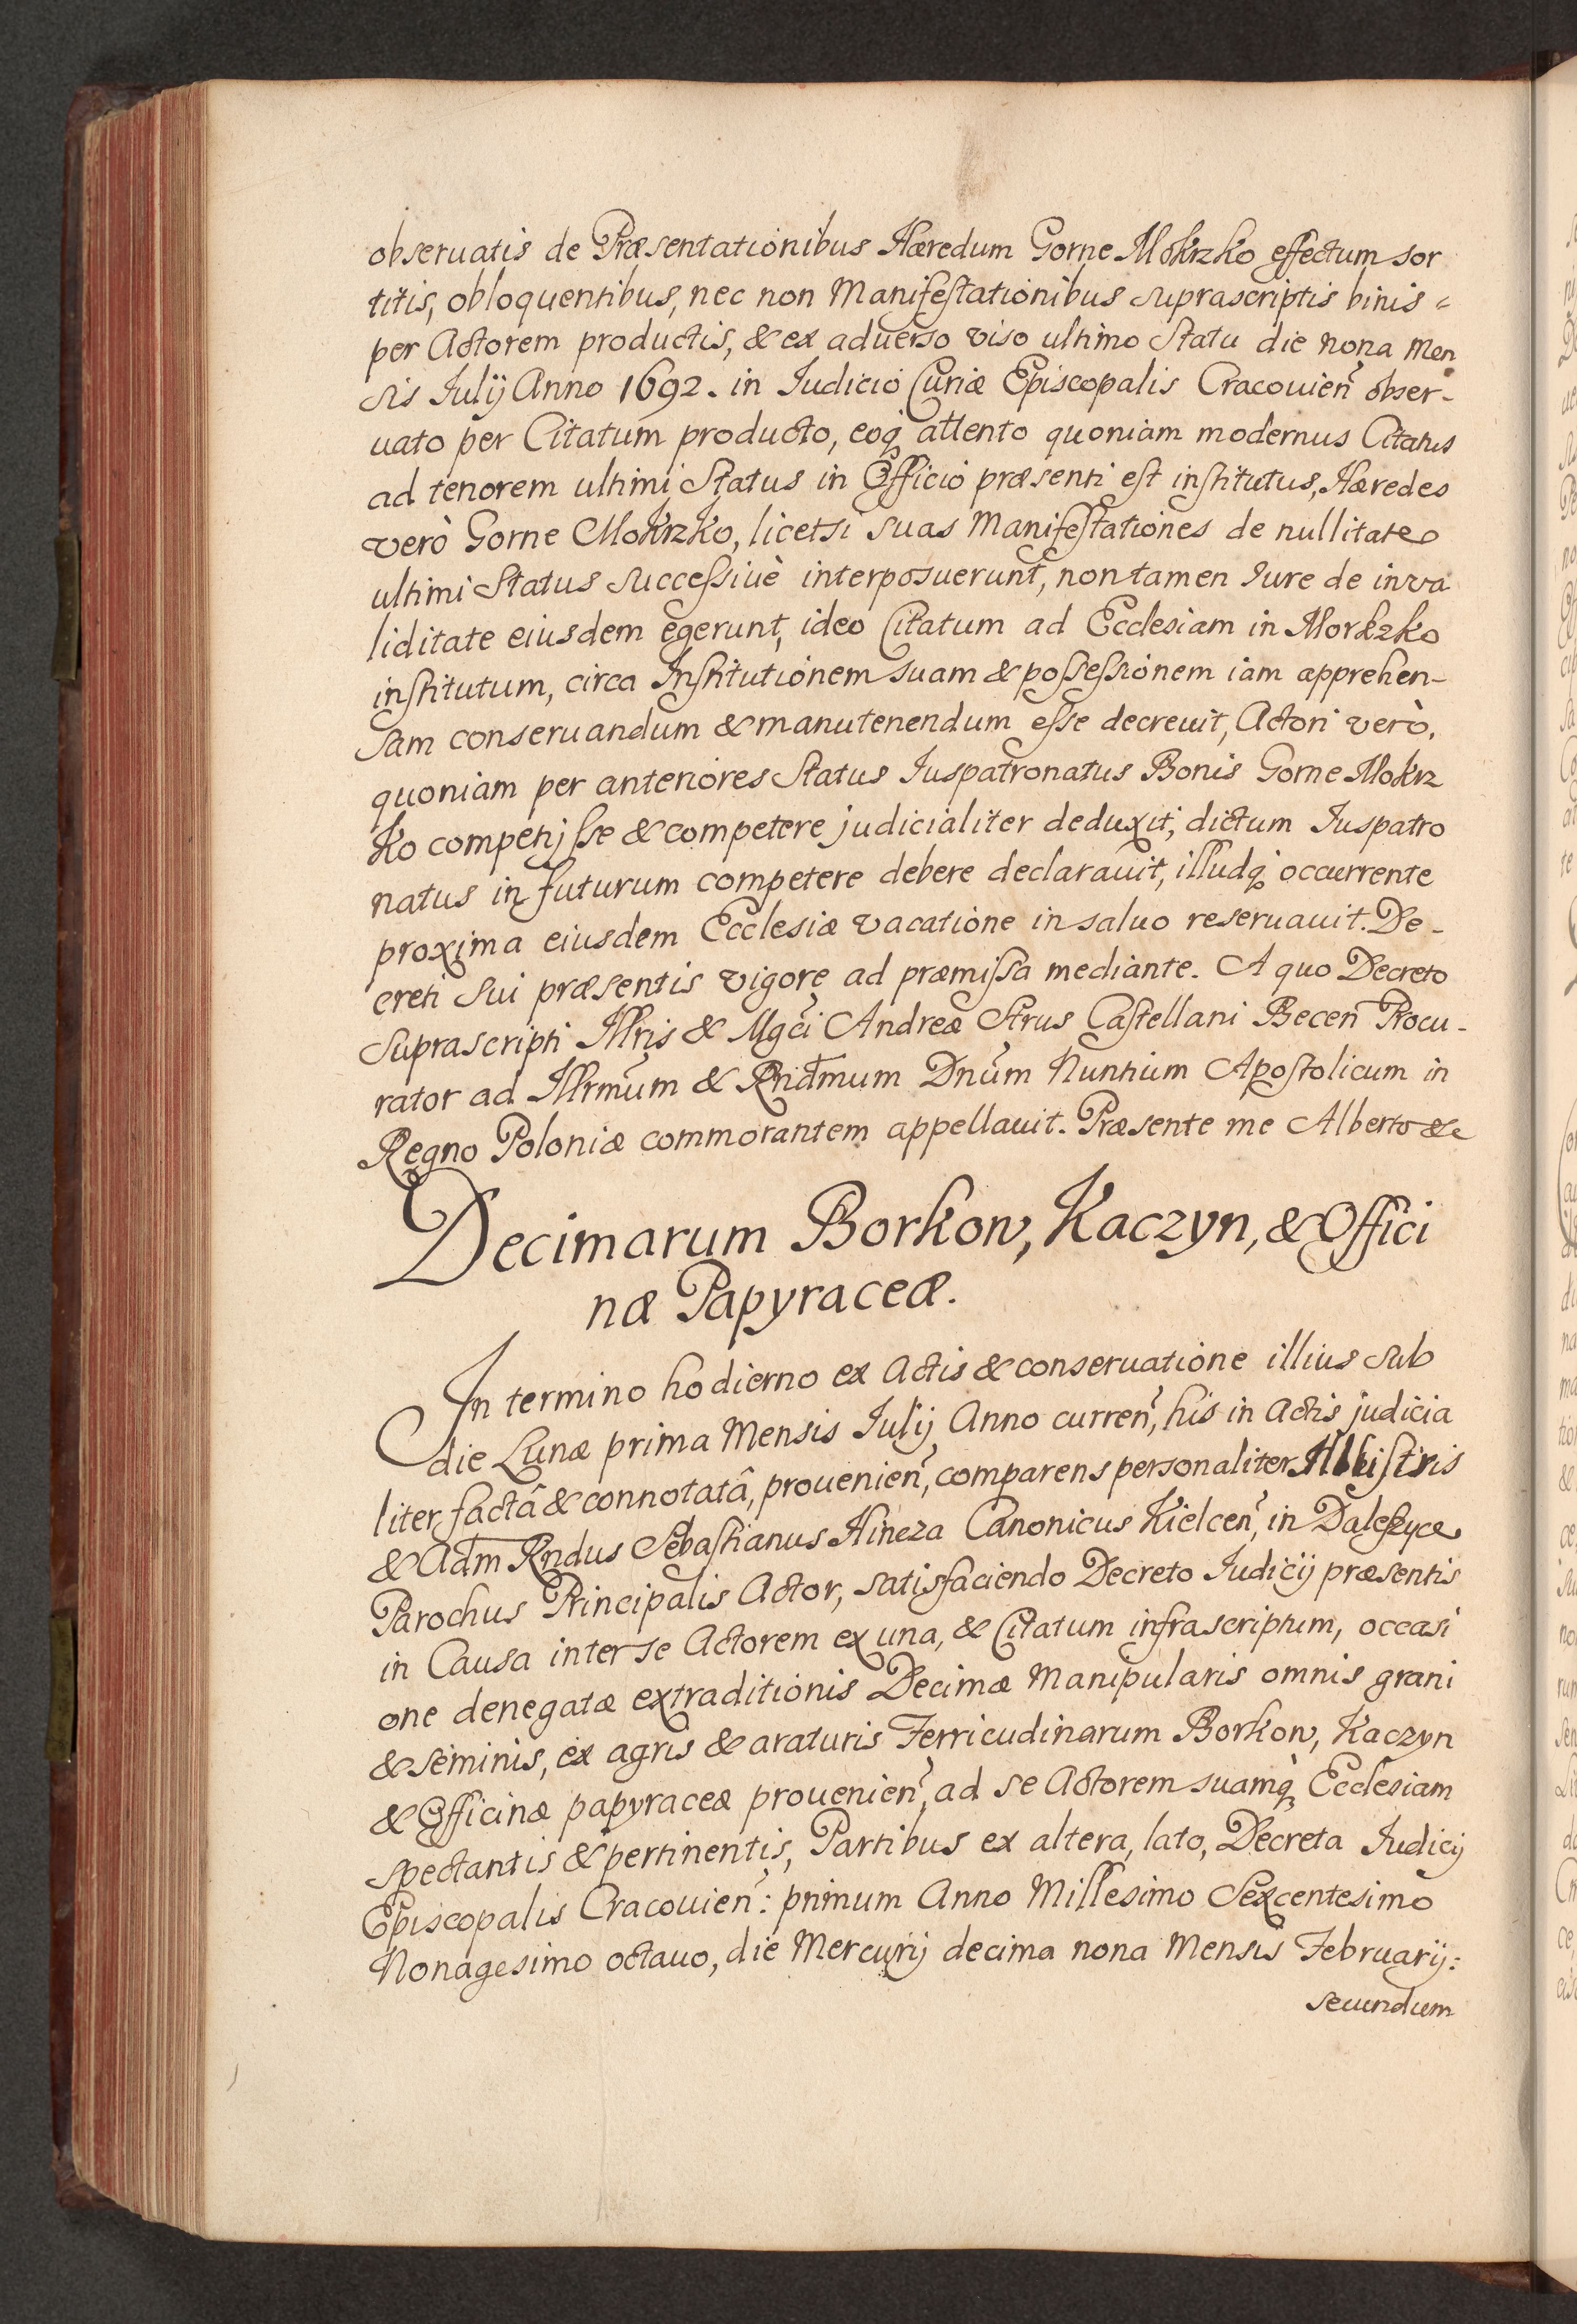 obseruatis de Præsentationibus Hæredum Gorne Mokrzko effectum sor
titis, obloquentibus, nec non Manifestationibus suprascriptis binis =
per Actorem productis, & ex aduerso viso ultimo Statu die nona Men
sis Iulij Anno 1692. in Iudicio Curiæ Episcopalis Cracouien̄ obser-
uato per Citatum producto, eoq̧ attento quoniam modernus Citatus
ad tenorem ultimi Status in Officio præsenti est institutus, Hæredes
verò Gorne Mokrzko, licetsi suas Manifestationes de nullitate
ultimi Status successiuè interposuerunt, non tamen Iure de inva
liditate eiusdem egerunt, ideo Citatum ad Ecclesiam in Morkzko
institutum, circa Institutionem suam & possessionem iam apprehen-
sam conseruandum & manutenendum esse decreuit, Actori verò,
quoniam per anteriores Status Iuspatronatus Bonis Gorne Mokrz
ko competijsse & competere judicialiter deduxit, dictum Iuspatro
natus in futurum competere debere declarauit, illudq̧ occurrente
proxima eiusdem Ecclesiæ vacatione in saluo reseruauit. De-
creti sui præsentis vigore ad præmissa mediante. A quo Decreto
suprascripti Illris & Mgci Andreæ Strus Castellani Becen̄ Procu-
rator ad Illrmum & Rndmum Dnum Nuntium Apostolicum in
Regno Poloniæ commorantem appellauit. Præsente me Alberto &c
Decimarum Borkow, Kaczyn, & Offici
næ Papyraceæ.
In termino hodierno ex Actis & conseruatione illius sub
die Lunæ prima Mensis Iulij Anno curren̄, his in Actis judicia
liter factâ & connotatâ, prouenien̄, comparens personaliter Illustris
& Adm Rndus Sebastianus Hineza Canonicus Kielcen̄, in Daleszyce
Parochus Principalis Actor, satisfaciendo Decreto Iudicij præsentis
in Causa inter se Actorem ex una, & Citatum infrascriptum, occasi
one denegatæ extraditionis Decimæ Manipularis omnis grani
& seminis, ex agris & araturis Ferricudinarum Borkow, Kaczyn
& Officinæ papyraceæ prouenien̄, ad se Actorem suamq̧ Ecclesiam
spectantis & pertinentis, Partibus ex altera, lato, Decreta Iudicij
Episcopalis Cracouien̄: primum Anno Millesimo Sexcentesimo
Nonagesimo octauo, die Mercurij decima nona Mensis Februarij:
secundum